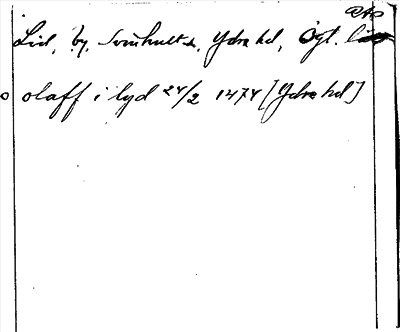 Lid, by, Svinhults sn, Ydre hd, Ögt. län
olaff i lyd 24/2 1474 [Ydre hd]